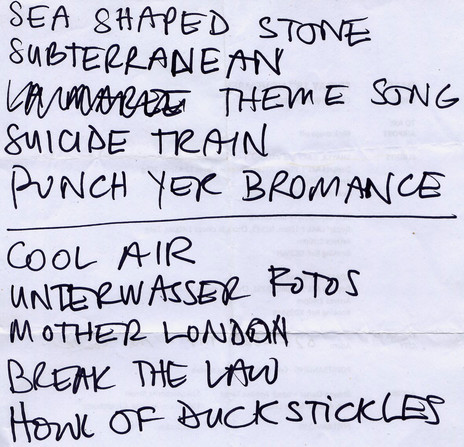 SEA SHAPED STONE
SUBTERRANEAN
THEME SONG
SUICIDE TRAIN
PUNCH YER BROMANCE
COOL AIR
UNTERWASSER FOTOS
MOTHER LONDON
BREAK THE LAW
HOWL OF DUCKSTICKLES